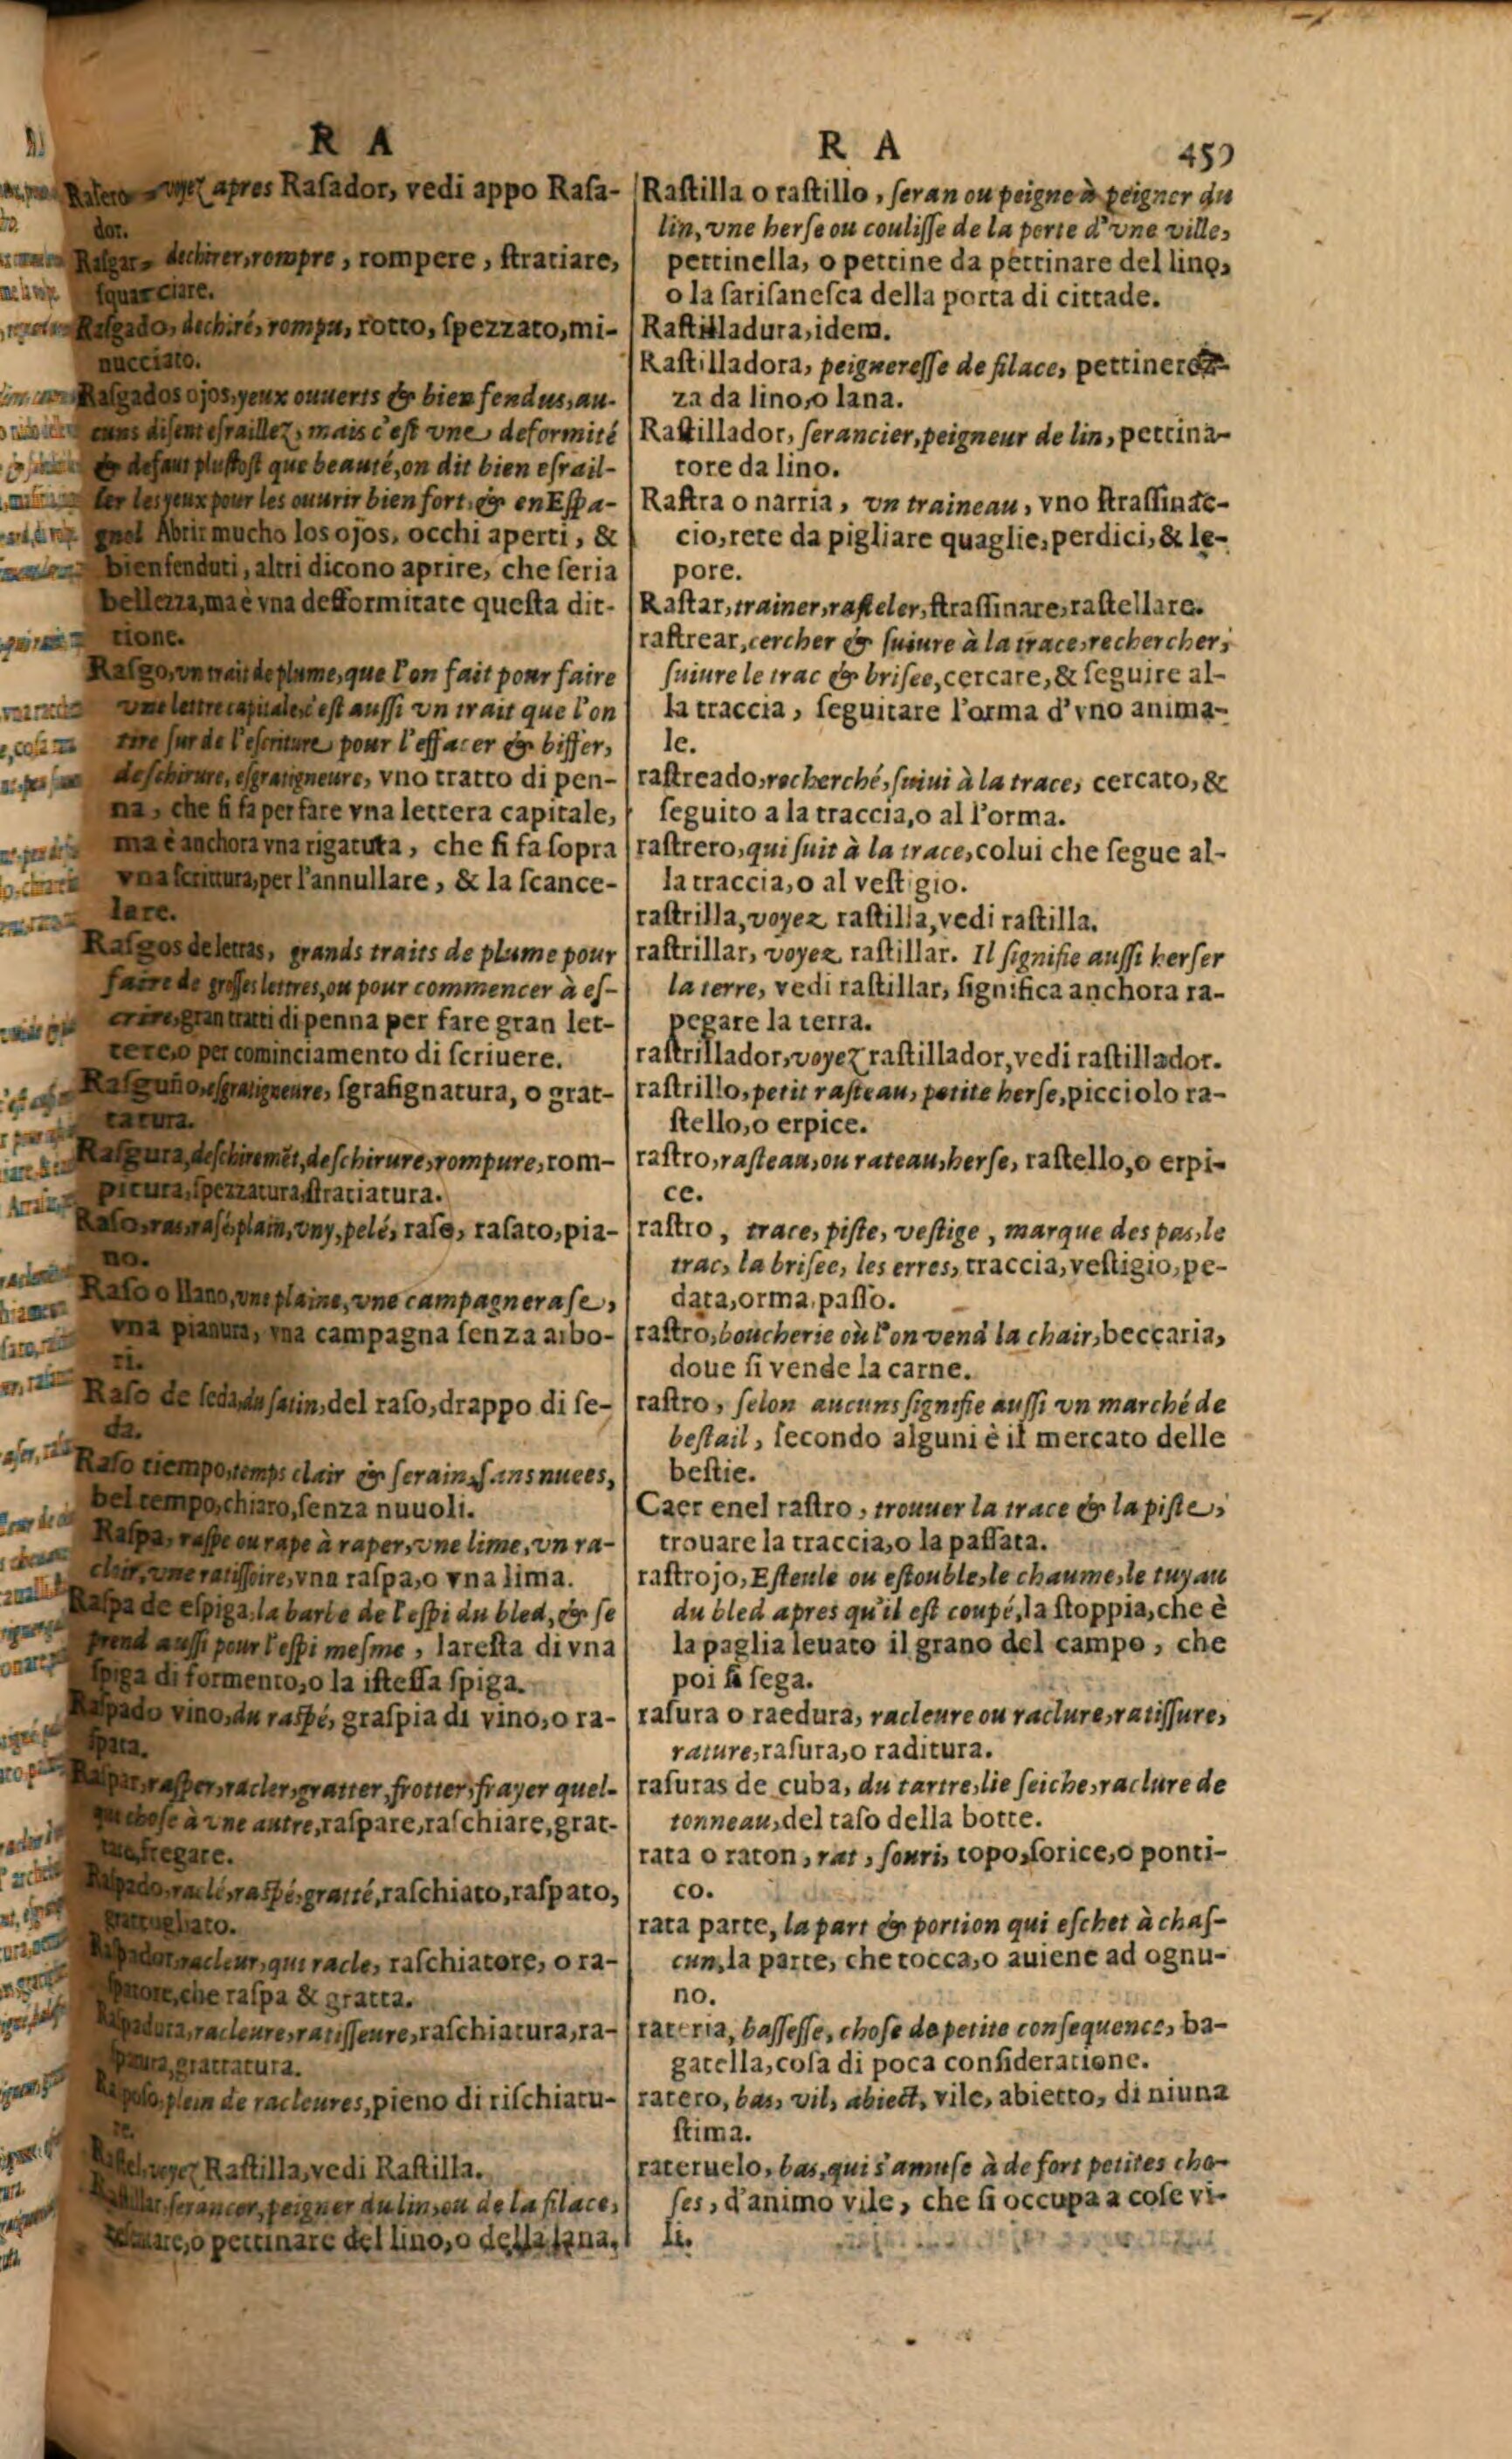 R A
Rasero voyez apres Rasador, vedi appo Rasa-
dor.
Rasgar, dechirer, rompre, rompere, stratiare,
squarciare.
Rasgado, dechiré, rompu, rotto, spezzato, mi-
nucciato.
Rasgados ojos, yeux ouuerts & bien fendus, au-
cuns disent esraillez, mais c'est vne deformité
& defaut plustost que beauté, on dit bien esrail-
ler les yeux pour les ouurir bien fort, & en Espa-
gnol Abrir mucho los ojos, occhi aperti, &
bienfenduti, altri dicono aprire, che seria
bellezza, ma è vna defformitate questa dit-
tione.
Rasgo, vn trait de plume, que l'on fait pour faire
vne lettre capitale, c'est aussi vn trait que l'on
tire sur de l'escriture pour l'effacer & biffer,
deschirure, esgratigneure, vno tratto di pen-
na, che si fa per fare vna lettera capitale,
ma è anchora vna rigatuta, che si fa sopra
vna scrittura, per l'annullare, & la scance-
lare.
Rasgos de letras, grands traits de plume pour
faire de grosses lettres, ou pour commencer à es-
crire, gran tratti di penna per fare gran let-
tere, o per cominciamento di scriuere.
Rasguño, esgratigneure, sgrafignatura, o grat-
tatura.
Rasgura, deschiremẽt, deschirure, rompure, rom-
pitura, spezzatura, stratiatura.
Raso, ras, rasé, plain, vny, pelé, raso, rasato, pia-
no.
Raso o llano, vne plaine, vne campagne rase,
vna pianura, vna campagna senza arbo-
ri.
Raso de seda, du satin, del raso, drappo di se-
da.
Raso tiempo, temps clair & serain, sans nuees,
bel tempo, chiaro, senza nuuoli.
Raspa, raspe ou rape à raper, vne lime, vn ra-
cloir, vne ratissoire, vna raspa, o vna lima.
Raspa de espiga, la barbe de l'espi du bled, & se
prend aussi pour l'espi mesme, laresta di vna
spiga di formento, o la istessa spiga.
Raspado vino, du raspé, graspia di vino, o ra-
spata.
Raspar, rasper, racler, gratter, frotter, frayer quel-
que chose à vne autre, raspare, raschiare, grat-
tare, fregare.
Raspado, raclé, raspé, gratté, raschiato, raspato,
grattugliato.
Raspador, racleur, qui racle, raschiatore, o ra-
spatore, che raspa & gratta.
Raspadura, racleure, ratisseure, raschiatura, ra-
spatura, grattatura.
Rasposo, plein de racleures, pieno di rischiatu-
re.
Rastel, voyez Rastilla, vedi Rastilla.
Rastillar, serancer, peigner du lin, ou de la filace,
o pettinare del lino, o della lana.
R A
459
Rastilla o rastillo, seran ou peigne à peigner du
lin, vne herse ou coulisse de la porte d'vne ville,
pettinella, o pettine da pettinare del lino,
o la sarisanesca della porta di cittade.
Rastilladura, idem.
Rastilladora, peigneresse de filace, pettinero
za da lino, o lana.
Rastillador, serancier, peigneur de lin, pettina-
tore da lino.
Rastra o narria, vn traineau, vno strassinate-
cio, rete da pigliare quaglie, perdici, & le-
pore.
Rastar, trainer, rasteler, strassinare, rastellare.
rastrear, cercher & suiure à la trace, rechercher,
suiure le trac & brisee, cercare, & seguire al-
la traccia, seguitare l'orma d'vno anima-
le.
rastreado, recherché, suiui à la trace, cercato, &
seguito a la traccia, o al l'orma.
rastrero, qui suit à la trace, colui che segue al-
la traccia, o al vestigio.
rastrilla, voyez rastilla, vedi rastilla.
rastrillar, voyez rastillar. Il signifie aussi herser
la terre, vedi rastillar, significa anchora ra-
pegare la terra.
rastrillador, voyez rastillador, vedi rastillador.
rastrillo, petit rasteau, petite herse, picciolo ra-
stello, o erpice.
rastro, rasteau, ou rateau, herse, rastello, o erpi-
ce.
rastro, trace, piste, vestige, marque des pas, le
trac, la brisee, les erres, traccia, vestigio, pe-
data, orma, passo.
rastro, boucherie où l'on vend la chair, beccaria,
doue si vende la carne.
rastro, selon aucuns signifie aussi vn marché de
bestail, secondo alguni è il mercato delle
bestie.
Caer enel rastro, trouuer la trace & la piste,
trouare la traccia, o la passata.
rastrojo, Esteule ou estouble, le chaume, le tuyau
du bled apres qu'il est coupé, la stoppia, che è
la paglia leuato il grano del campo, che
poi si sega.
rasura o raedura, racleure ou raclure, ratissure,
rature, rasura, o raditura.
rasuras de cuba, du tartre, lie seiche, raclure de
tonneau, del taso della botte.
rata o raton, rat, souri, topo, sorice, o ponti-
co.
rata parte, la part & portion qui eschet à chas-
cun, la parte, che tocca, o auiene ad ognu-
no.
rateria, bassesse, chose de petite consequence, ba-
gatella, cosa di poca consideratione.
ratero, bas, vil, abiect, vile, abietto, di niuna
stima.
rateruelo, bas, qui s'amuse à de fort petites cho-
ses, d'animo vile, che si occupa a cose vi-
li.